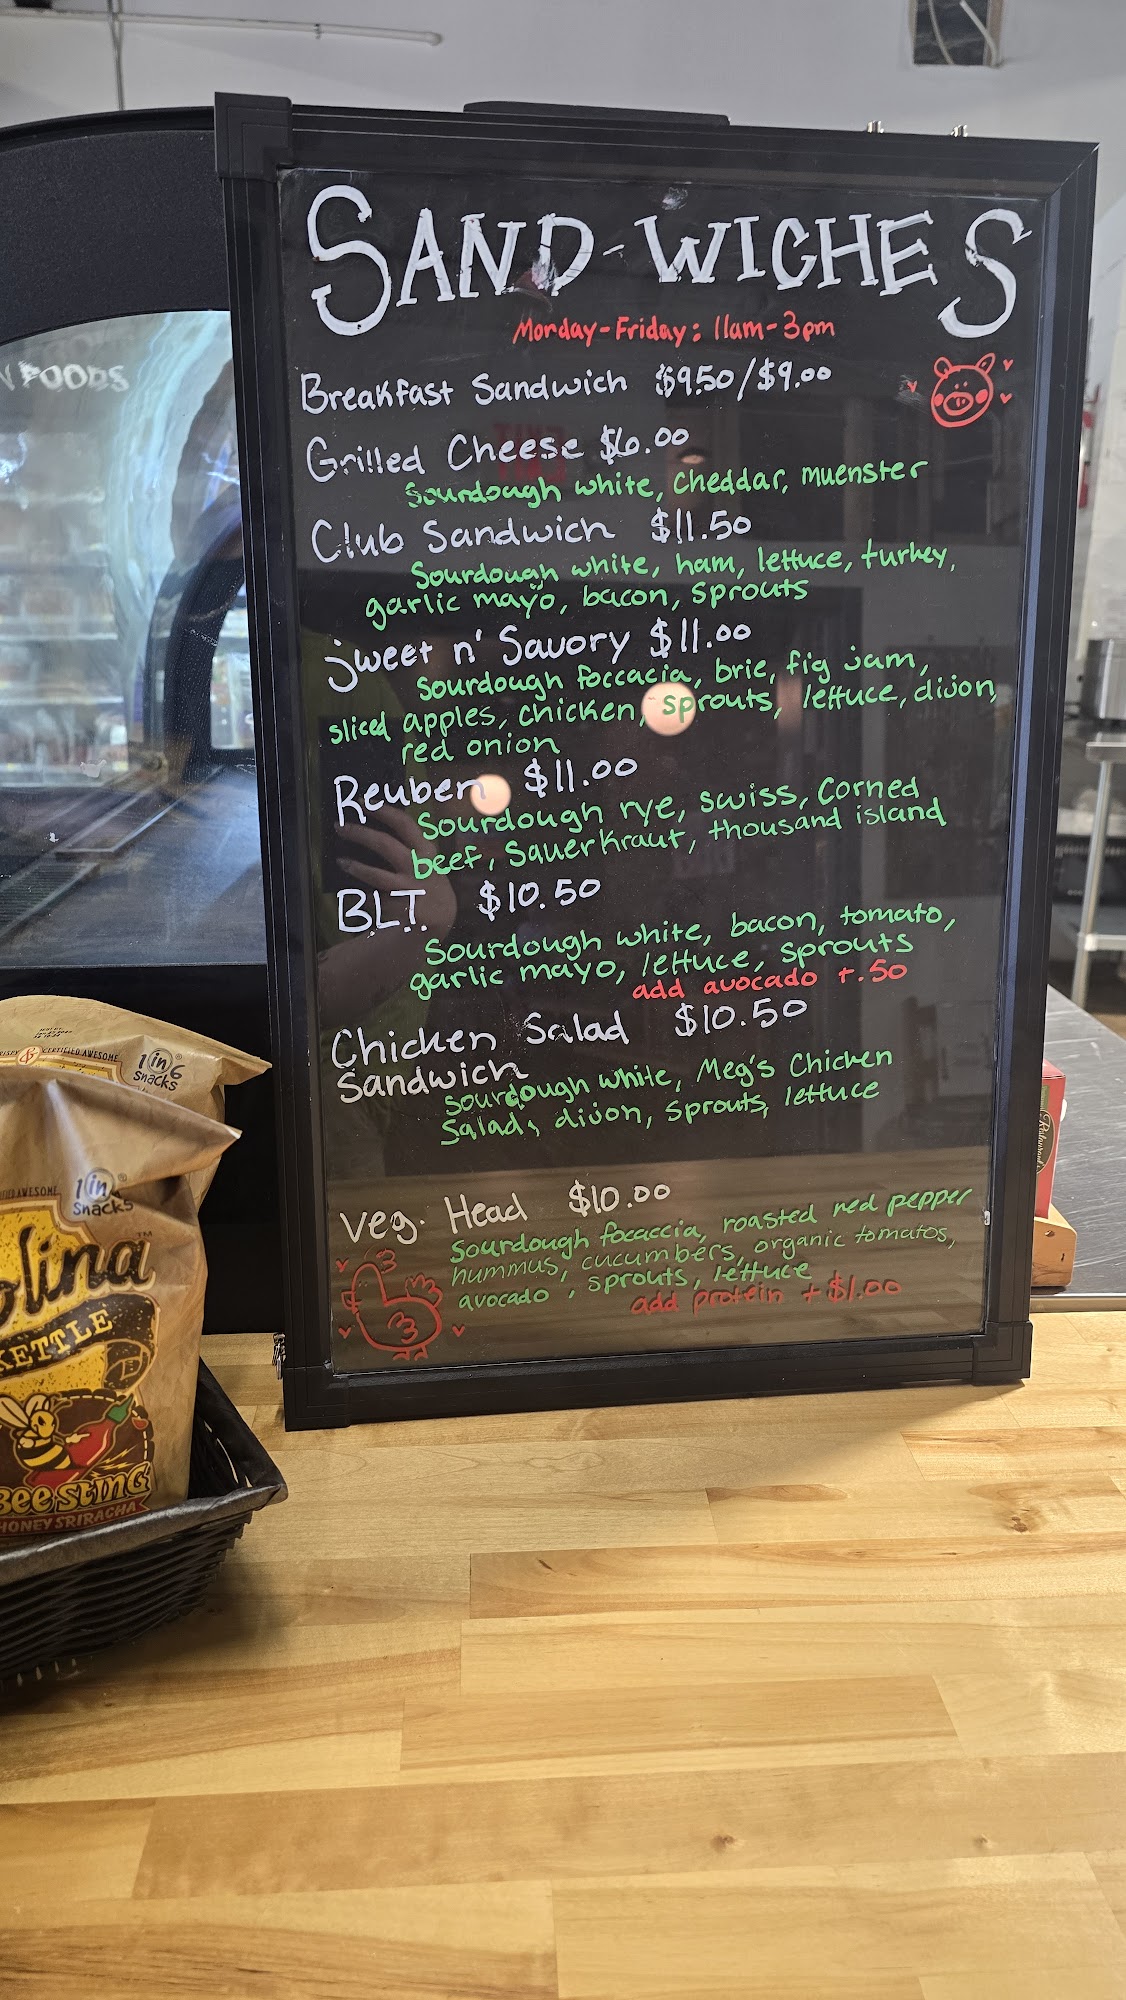 SAND-WICHES
Monday-Friday: 11am-3pm
Breakfast Sandwich $9.50/$9.00
Grilled Cheese $6.00
Sourdough white, cheddar, muenster
Club Sandwich $11.50
Sourdough white, ham, lettuce, turkey,
garlic mayo, bacon, sprouts
Sweet n' Savory $11.00
Sourdough foccacia, brie, fig jam,
sliced apples, chicken, sprouts, lettuce, dijon,
red onion
Reuben $11.00
Sourdough rye, swiss, Corned
beef, Sauerkraut, thousand island
BLT $10.50
Sourdough white, bacon, tomato,
garlic mayo, lettuce, sprouts
add avocado +.50
Chicken Salad $10.50
Sandwich
sourdough white, Meg's Chicken
Salad, dijon, sprouts, lettuce
Veg. Head $10.00
Sourdough focaccia, roasted red pepper
hummus, cucumbers, organic tomatos,
avocado, sprouts, lettuce
add protein + $1.00
FOODS
CERTIFIED AWESOME
1 in 6
snacks
AWESOME
1 in
snacks
olina
KETTLE
Bee Sting
HONEY SRIRACHA